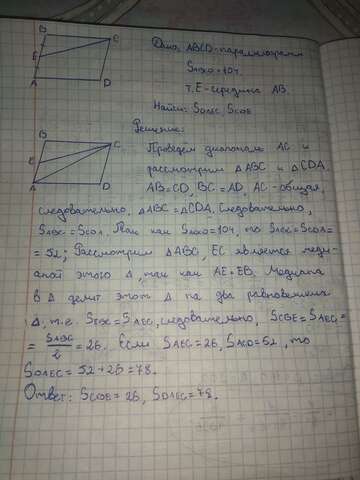 B
C
E
A
D
Дано: ABCD-параллелограмм
SABCD=104.
т. E-середина AB.
Найти: SDAEC, SCBE
Решение:
B
C
E
A
D
Проведём диагональ AC и
рассмотрим △ABC и △CDA.
AB=CD, BC=AD, AC-общая,
следовательно, △ABC=△CDA. Следовательно,
SABC=SCDA. Так как SABCD=104, то SABC=SCDA=
=52; Рассмотрим △ABC, EC является меди-
аной этого △, так как AE=EB. Медиана
в △ делит этот △ на два равновеликих
△, т.е. SCBE=SAEC, следовательно, SCBE=SAEC=
=SABC/2=26. Если SAEC=26, SACD=52, то
SDAEC=52+26=78.
Ответ: SCBE=26, SDAEC=78.